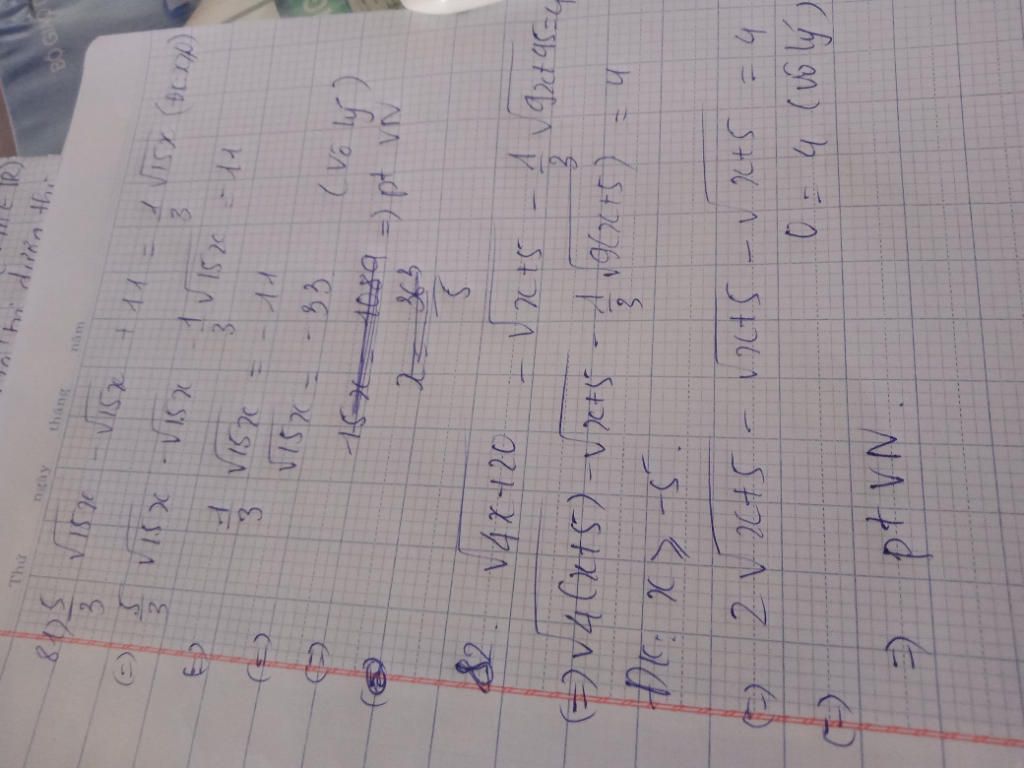 Thứ ngày tháng năm
81) 5/3 √15x - √15x + 11 = 1/3 √15x (ĐKXĐ)
(=) 5/3 √15x - √15x - 1/3 √15x = -11
(=) 1/3 √15x = -11
(=) √15x = -33 (vô lý)
=) pt VN
82. √4x+20 - √x+5 - 1/3 √9x+45=4
(=) √4(x+5) - √x+5 - 1/3 √9(x+5) = 4
ĐK: x ≥ -5.
(=) 2√x+5 - √x+5 - √x+5 = 4
(=) 0 = 4 (vô lý)
=) pt VN.